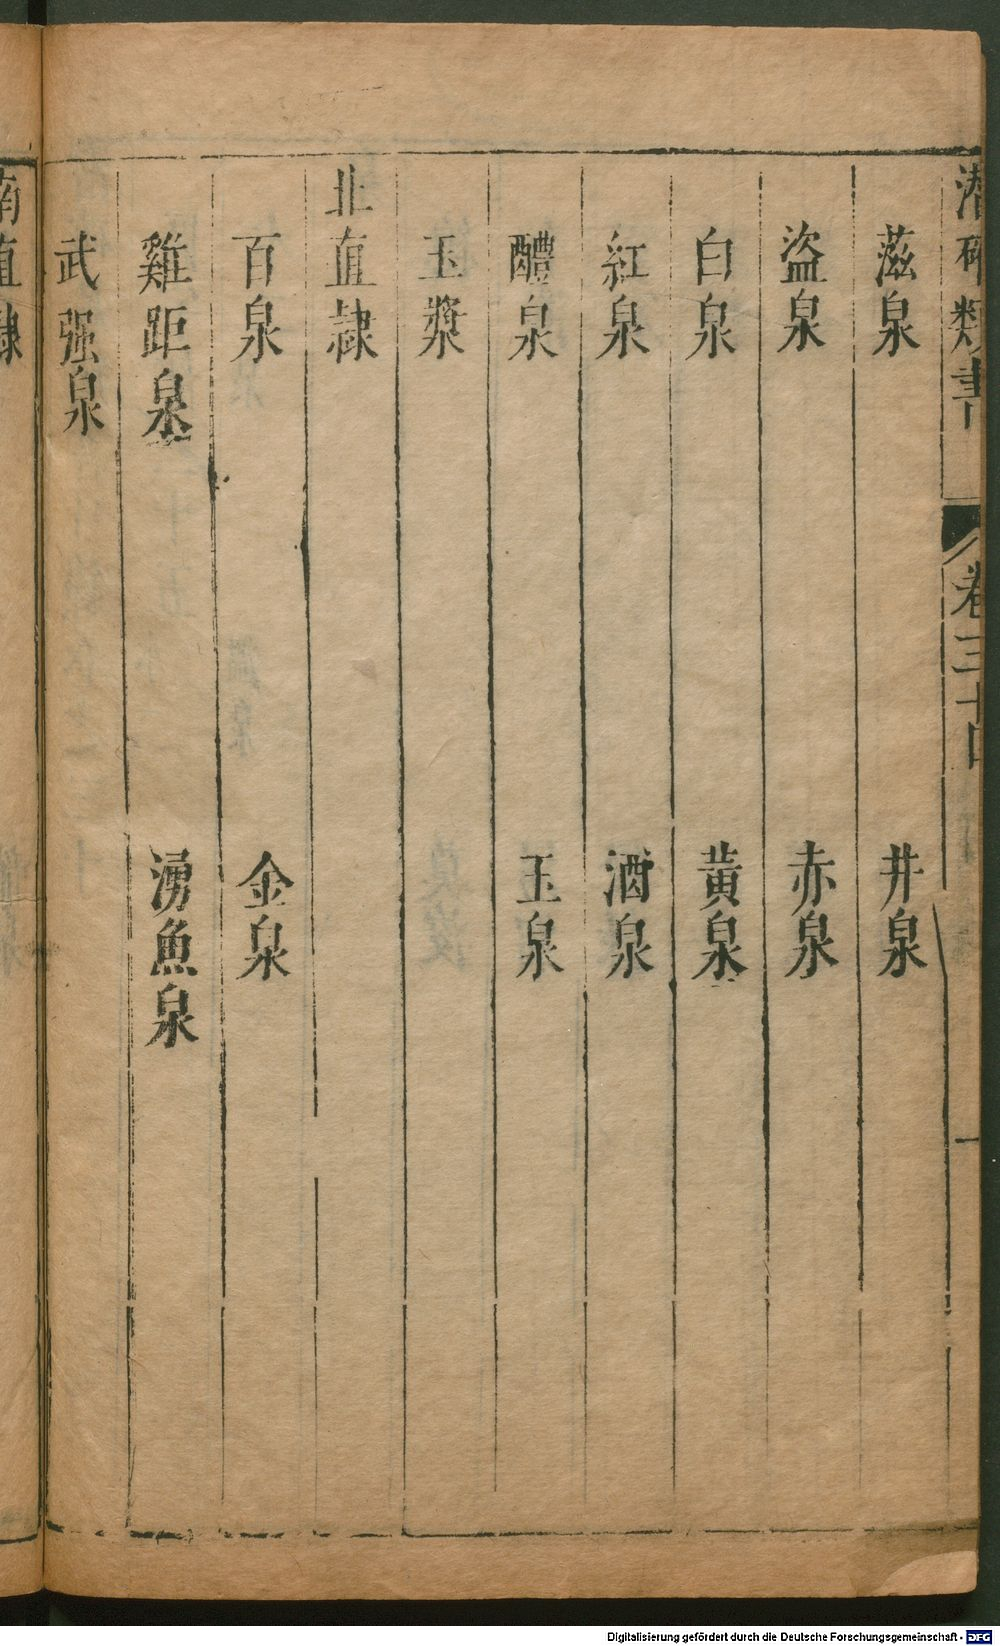 潛確類書 卷三十四 一
蒎泉 井泉
盜泉 赤泉
白泉 黄泉
紅泉 酒泉
醴泉 玉泉
玉漿
北直隸
百泉 金泉
雞距泉 湧魚泉
武强泉
南直隸
Digitalisierung gefördert durch die Deutsche Forschungsgemeinschaft - DFG